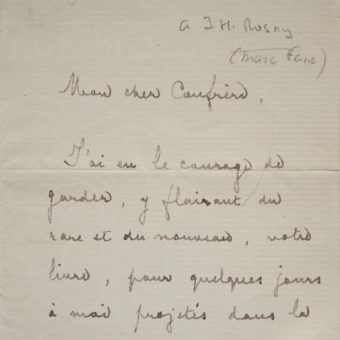 A J. H. Rosny
(Marc Fane)
Mon cher Confrère,
J'ai eu le courage de
garder, y flairant du
rare et du nouveau, votre
livre, pour quelques jours
à moi projetés dans la